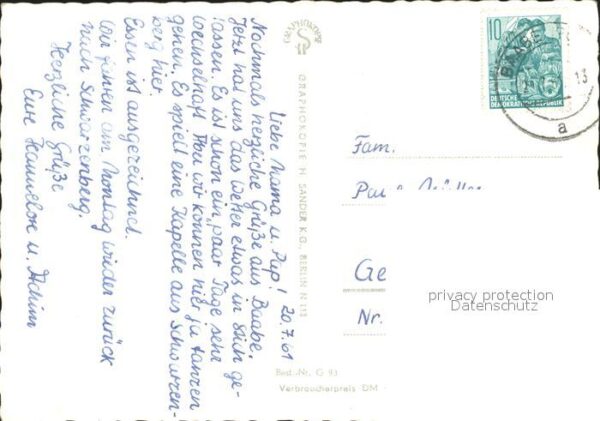 20.7.61
Liebe Mama u. Pup!
Nochmals herzliche Grüße aus Baabe.
Jetzt hat uns das Wetter etwas in Stich ge-
lassen. Es ist schon ein paar Tage sehr
wechselhaft. Aber wir können hier ja tanzen
gehen. Es spielt eine Kapelle aus Schwarzen-
berg hier.
Essen ist ausgezeichnet.
Wir fahren am Montag wieder zurück
nach Schwarzenberg.
Herzliche Grüße
Eure Hannelore u. Achim
GRAPHOKOPIE
GRAPHOKOPIE H. SANDER K.G., BERLIN N 113
10
DEUTSCHE
DEMOKRATISCHE REPUBLIK
a
Fam.
Ge
Nr.
privacy protection
Datenschutz
Best.-Nr. G 93
Verbraucherpreis DM